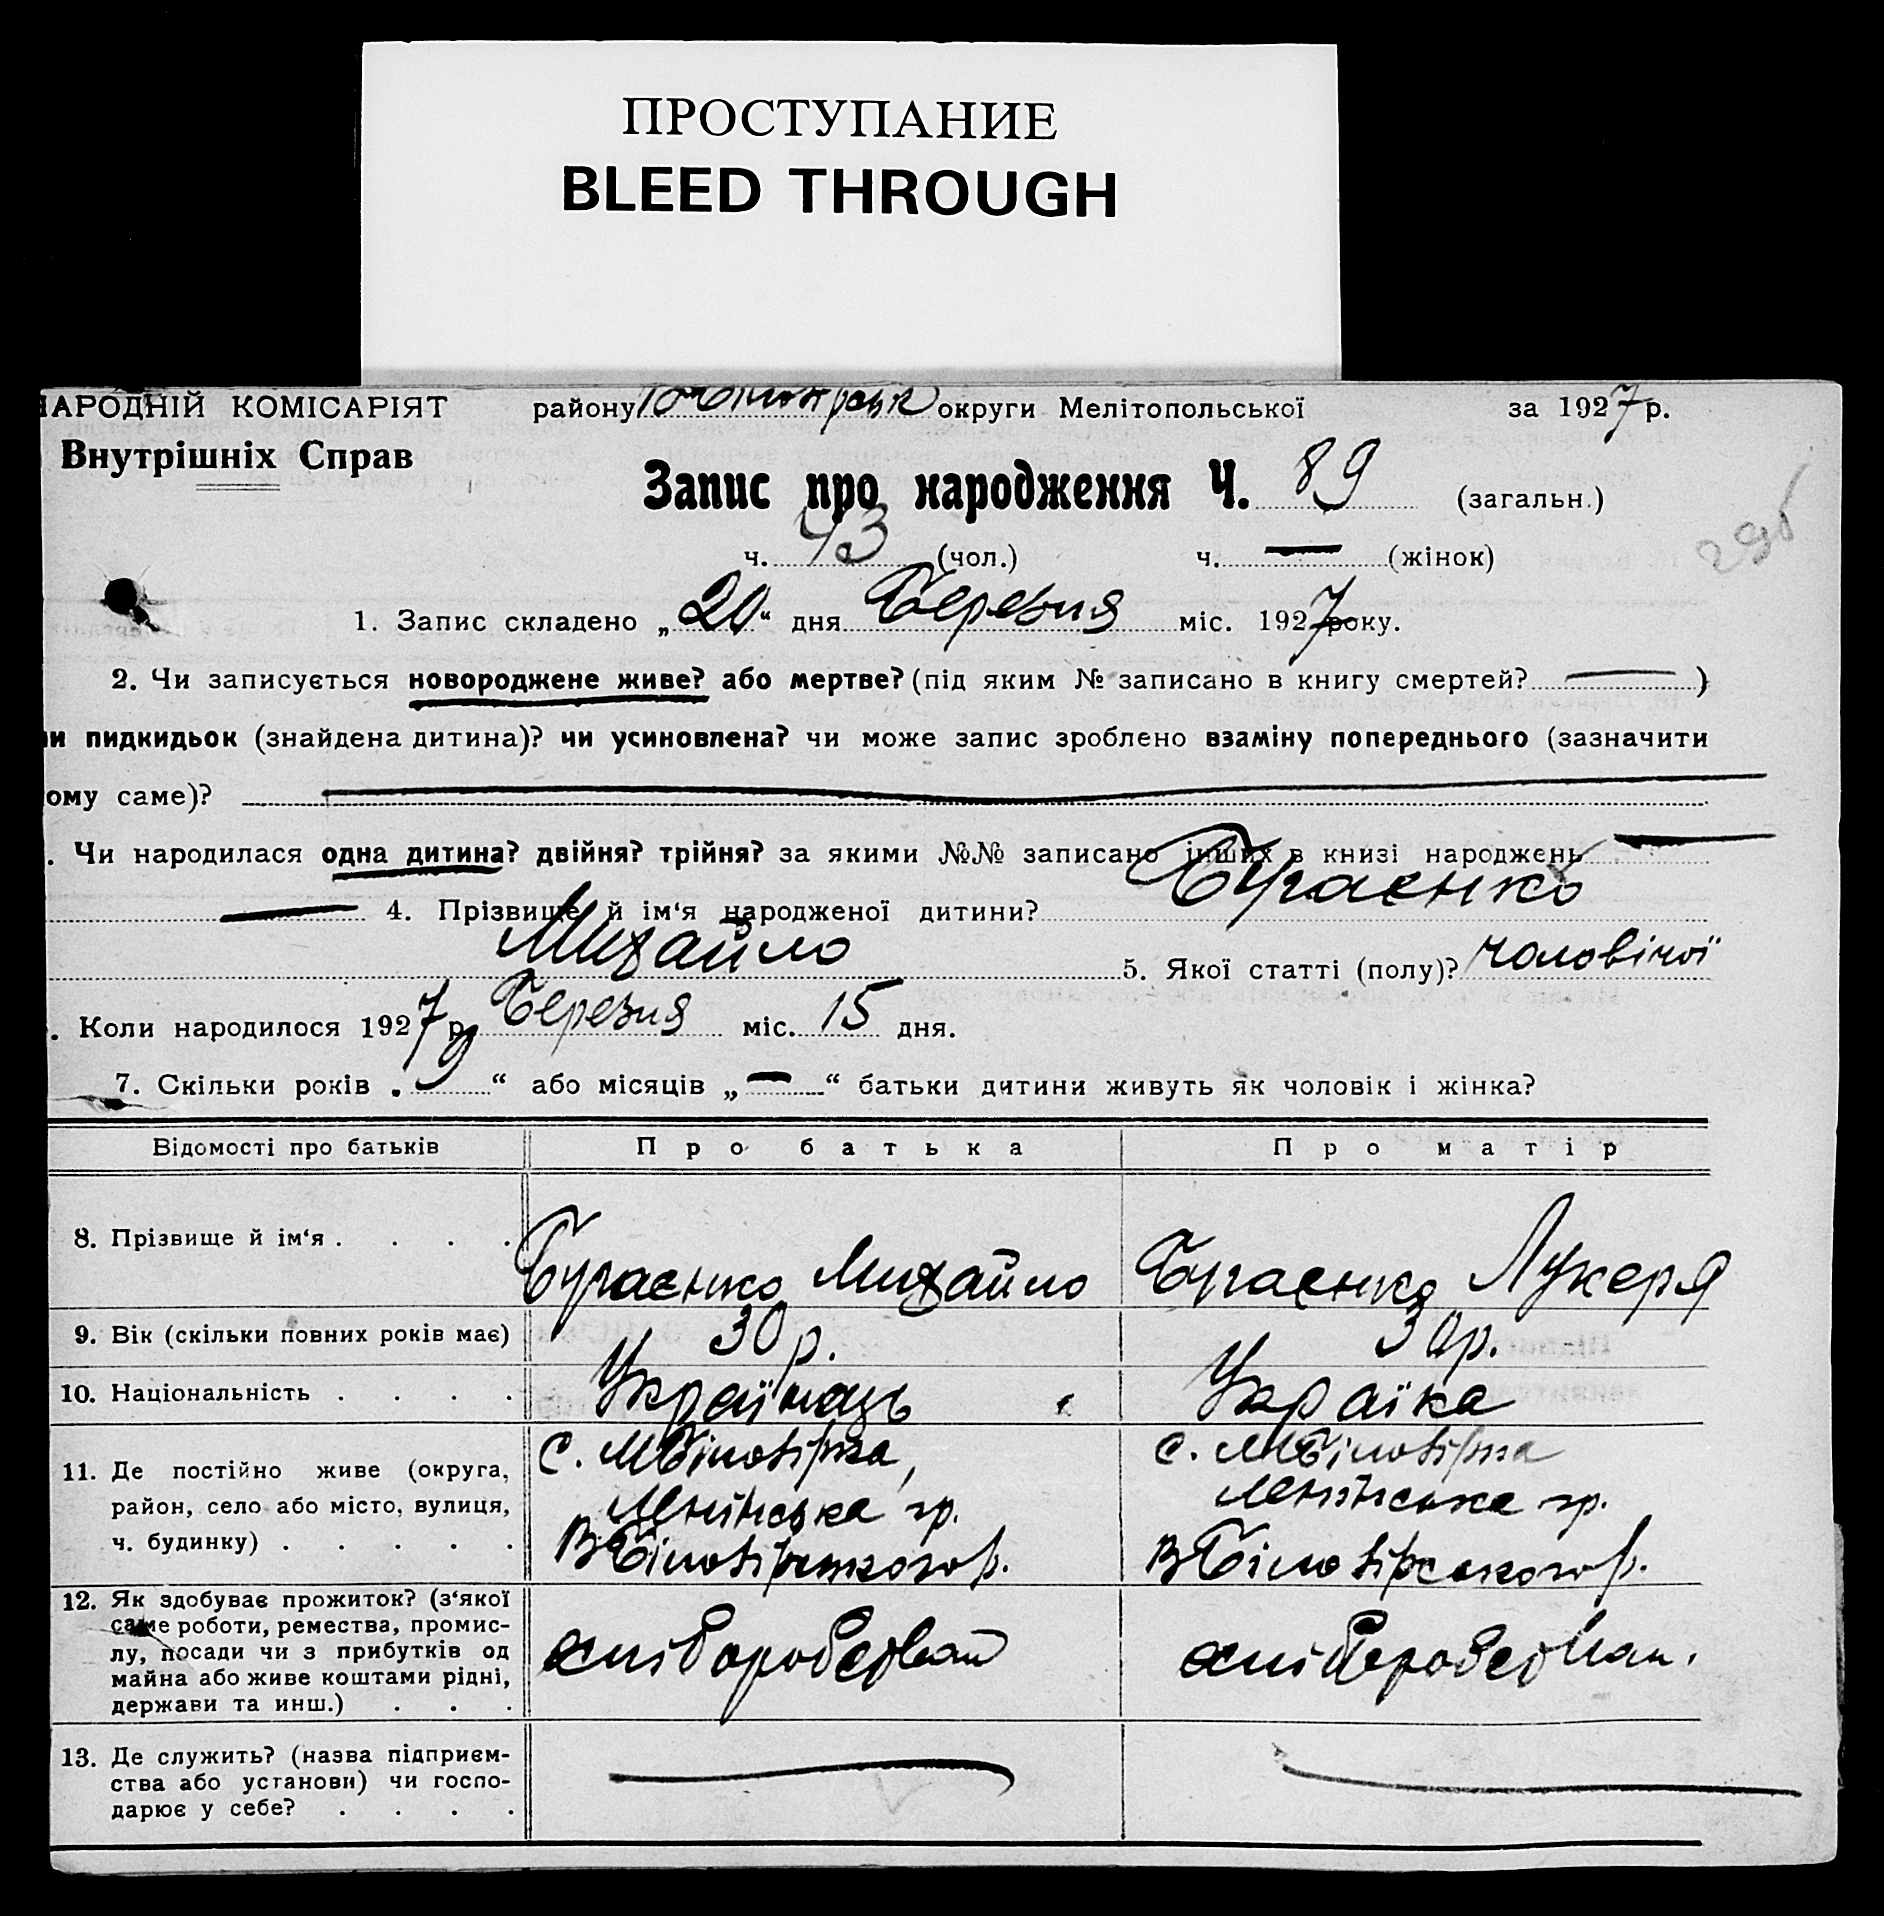 ПРОСТУПАНИЕ
BLEED THROUGH
НАРОДНІЙ КОМІСАРІЯТ району округи Мелітопольської за 1927 р.
Внутрішніх Справ
Запис про народження Ч. 89 (загальн.)
ч. 43 (чол.) ч. — (жінок)
1. Запис складено „20“ дня Березня міс. 1927 року.
2. Чи записується новороджене живе? або мертве? (під яким № записано в книгу смертей? — )
и пидкидьок (знайдена дитина)? чи усиновлена? чи може запис зроблено взаміну попереднього (зазначити
ому саме)? —
. Чи народилася одна дитина? двійня? трійня? за якими №№ записано інших в книзі народжень —
— 4. Прізвище й ім‘я народженої дитини? Бугаєнко
Михайло 5. Якої статті (полу)? чоловічої
. Коли народилося 1927 р. Березня міс. 15 дня.
7. Скільки років „9“ або місяців „—“ батьки дитини живуть як чоловік і жінка?
Відомості про батьків Про батька Про матір
8. Прізвище й ім‘я . . . . Бугаєнко Михайло Бугаєнко Лукеря
9. Вік (скільки повних років має) 30 р. 30 р.
10. Національність . . . . Українець Українка
11. Де постійно живе (округа, с. МБілозірка, с. МБілозірка
район, село або місто, вулиця, Ленінська гр. Ленінська гр.
ч. будинку) . . . . . ВБілозірського р. ВБілозірського р.
12. Як здобуває прожиток? (з‘якої
саме роботи, ремества, промис-
лу, посади чи з прибутків од
майна або живе коштами рідні,
держави та инш.) . . .
13. Де служить? (назва підприєм-
ства або установи) чи госпо- — —
дарює у себе? . . . .